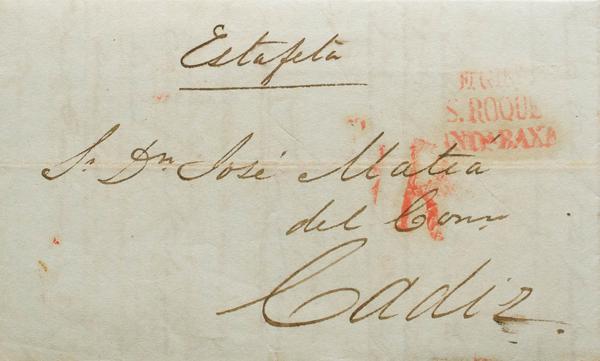 Estafeta
S. ROQUE
ANDA BAXA
Sr. Dn. José Matía
del Com
Cadiz.